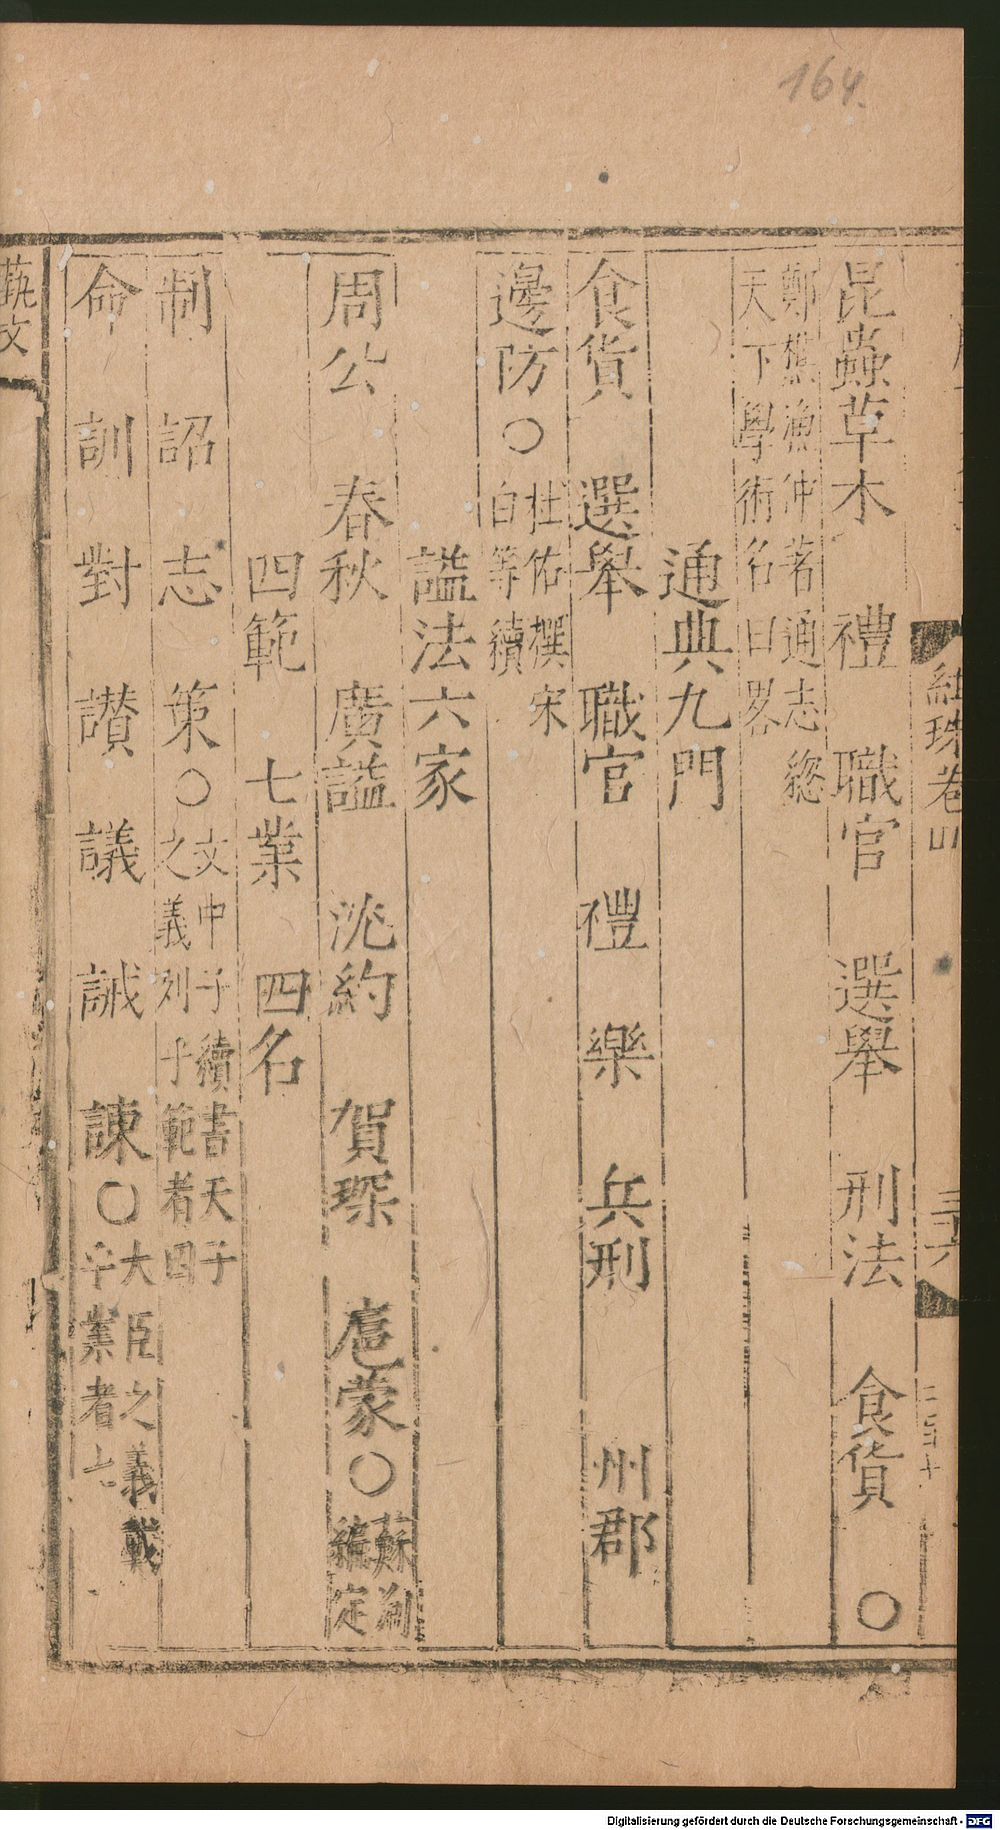 164.
紺珠卷四
三十六
昆蟲草木 禮 職官 選舉 刑法 食貨 ○
鄭樵漁仲著通志緫
天下學術名曰畧
通典九門
食貨 選舉 職官 禮 樂 兵刑 州郡
邊防○
杜佑撰宋
白等續
諡法六家
周公 春秋 廣諡 沈約 賀琛 扈蒙○
蘇洵
編定
四範 七業 四名
制 詔 志 策○
文中子續書天子
之義列于範者四
命 訓 對 讃 議 誡 諫○
大臣之義載
于業者七
蓺文
Digitalisierung gefördert durch die Deutsche Forschungsgemeinschaft - DFG